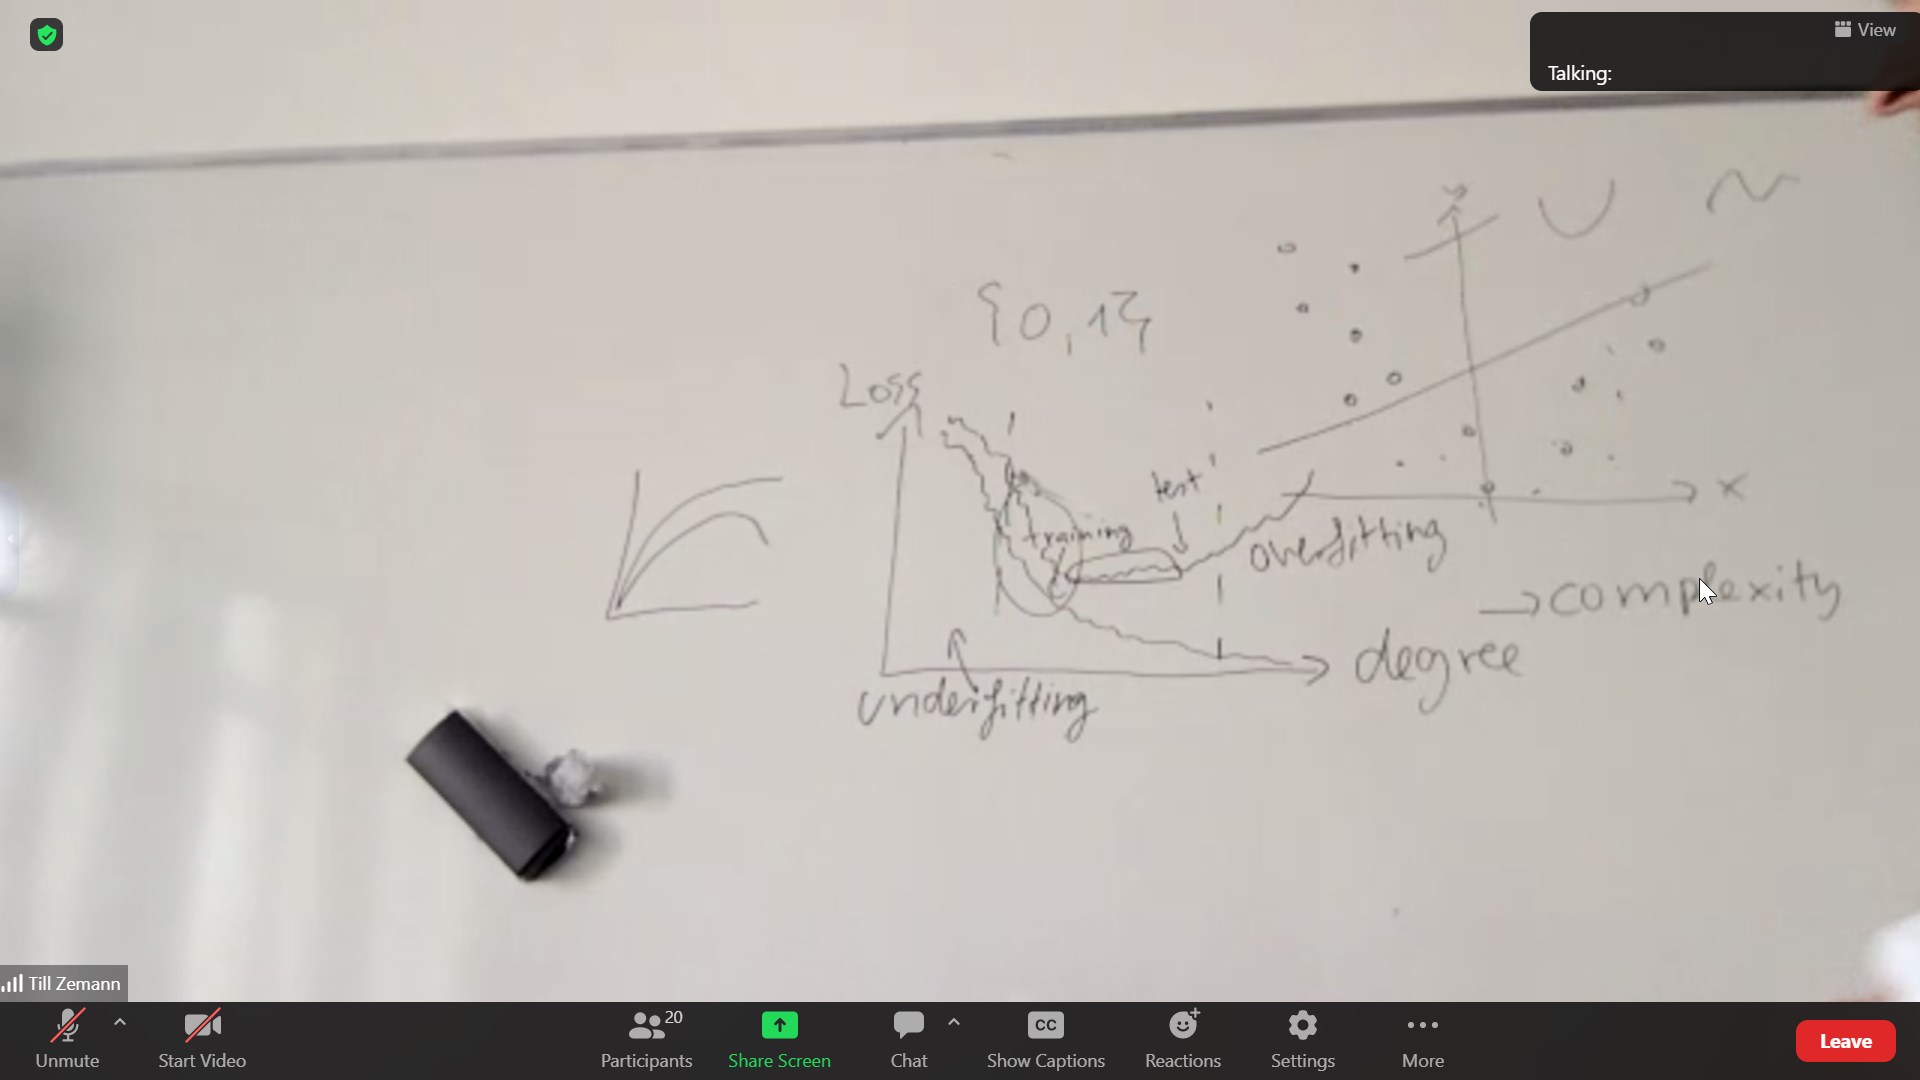 View
Talking:
y
{0,1}
Loss
test
training
x
overfitting
→complexity
degree
underfitting
Till Zemann
20
CC
Unmute
Start Video
Participants
Share Screen
Chat
Show Captions
Reactions
Settings
More
Leave